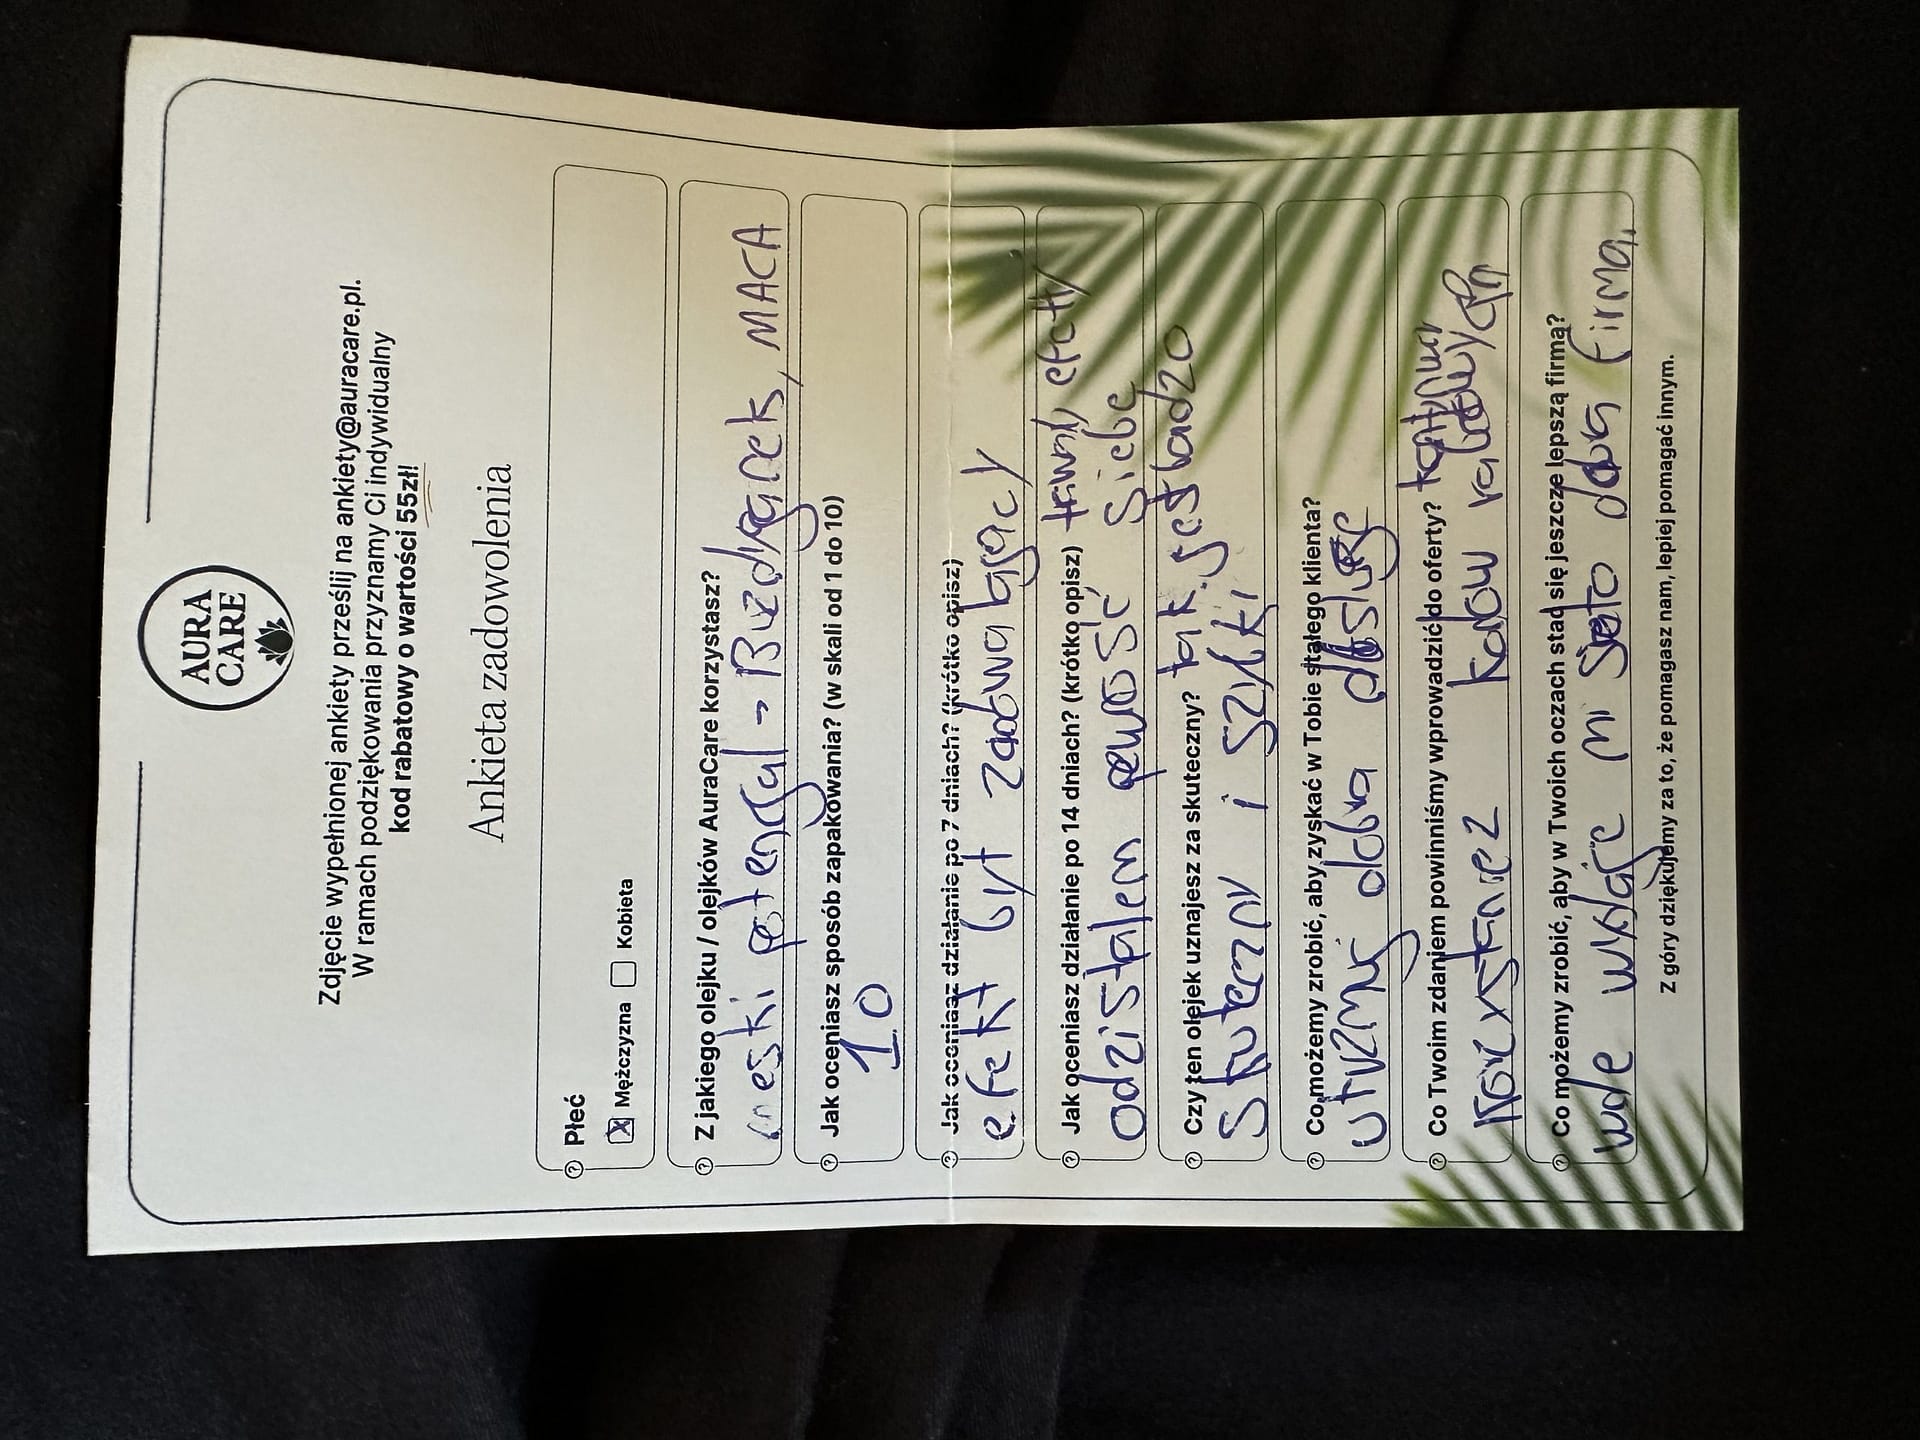 AURA
CARE
Zdjęcie wypełnionej ankiety prześlij na ankiety@auracare.pl.
W ramach podziękowania przyznamy Ci indywidualny
kod rabatowy o wartości 55zł!
Ankieta zadowolenia
Płeć
x Mężczyzna Kobieta
Z jakiego olejku / olejków AuraCare korzystasz?
meski potencjal - Buzdyganek, MACA
Jak oceniasz sposób zapakowania? (w skali od 1 do 10)
10
Jak oceniasz działanie po 7 dniach? (krótko opisz)
efekt był zadowalający
Jak oceniasz działanie po 14 dniach? (krótko opisz) efekty
odzistalem pewność Siebe
Czy ten olejek uznajesz za skuteczny? tak. jest badzo
Skuteczny i szybki
Co możemy zrobić, aby zyskać w Tobie stałego klienta?
dobra
Co Twoim zdaniem powinniśmy wprowadzić do oferty?
kodow rabatowych
Co możemy zrobić, aby w Twoich oczach stać się jeszcze lepszą firmą?
mi firma
Z góry dziękujemy za to, że pomagasz nam, lepiej pomagać innym.